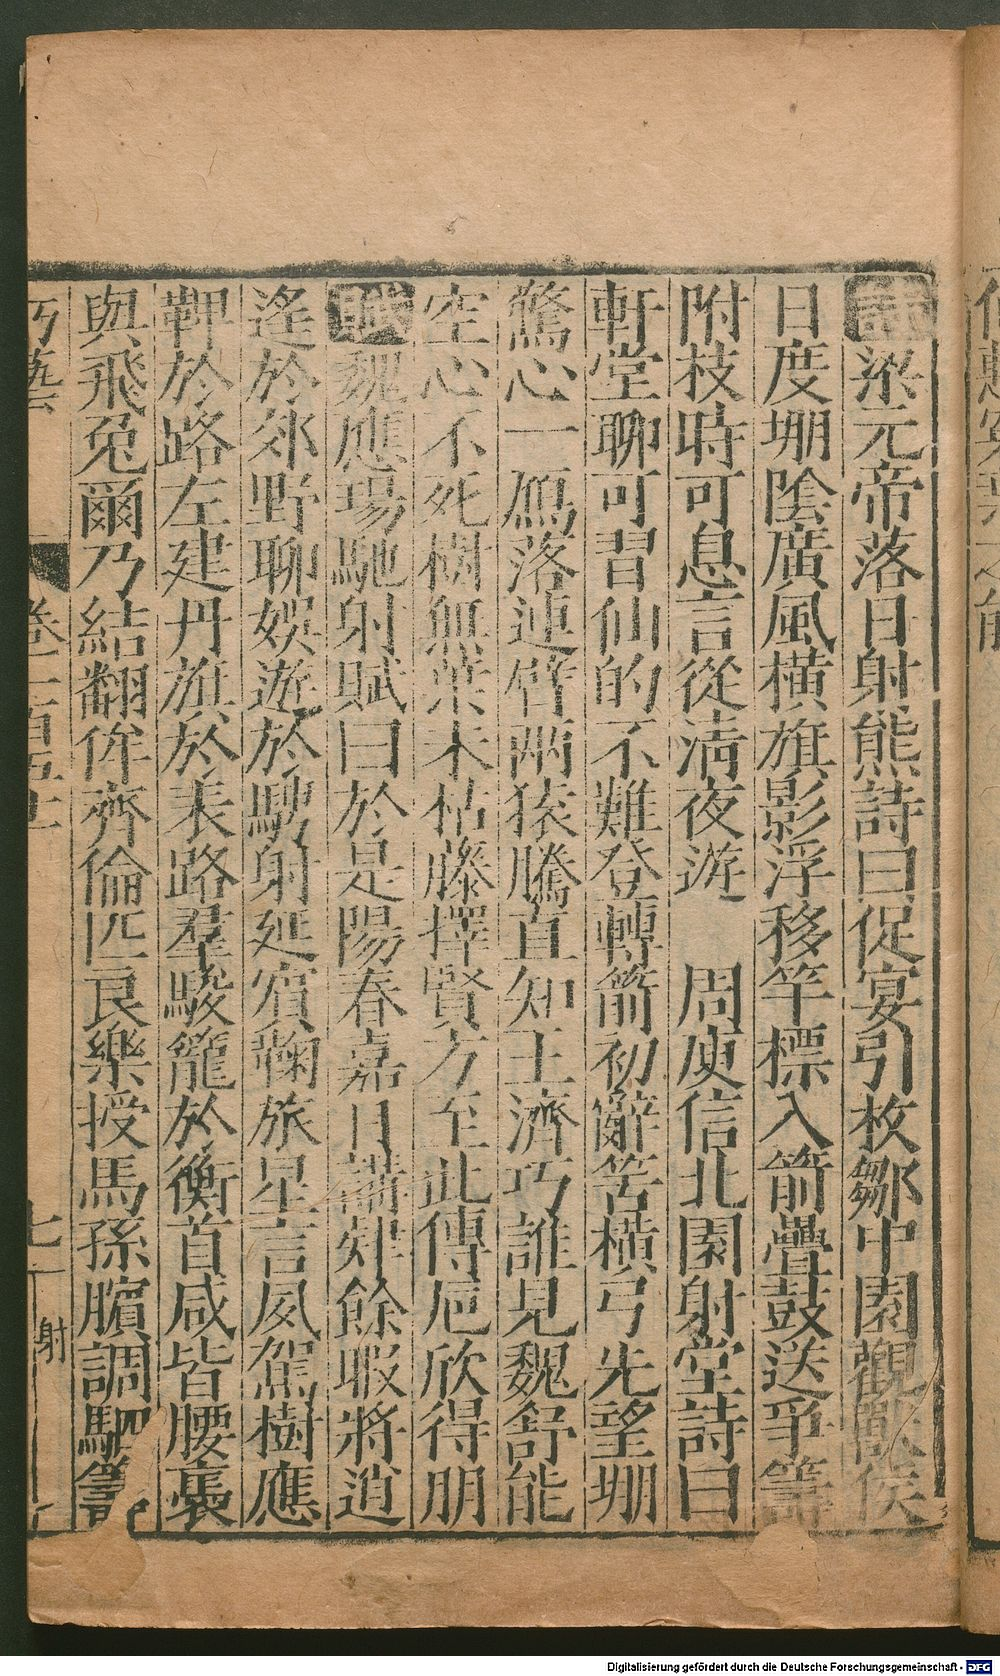 詩梁元帝落日射熊詩曰促宴引枚鄒中園觀獸侯
日度堋陰廣風横旗影浮移竿標入箭疊鼓送爭籌
附枝時可息言從清夜遊　周庾信北園射堂詩曰
軒堂聊可習仙的不難登轉箭初辭筈横弓先望堋
驚心一鴈落連臂兩猿騰直知王濟巧誰見魏舒能
空心不死樹無葉未枯藤擇賢方至此傳巵欣得朋
賦魏應瑒馳射賦曰於是陽春嘉日講肄餘暇將逍
遙於郊野聊娱遊於騁射延賓鞠旅星言夙駕樹應
鞞於路左建丹旗於表路羣駿籠於衡首咸皆腰褭
與飛兔爾乃結翻侔齊倫匹良樂授馬孫臏調駟
巧藝
卷一百五十
七
射
Digitalisierung gefördert durch die Deutsche Forschungsgemeinschaft - DFG